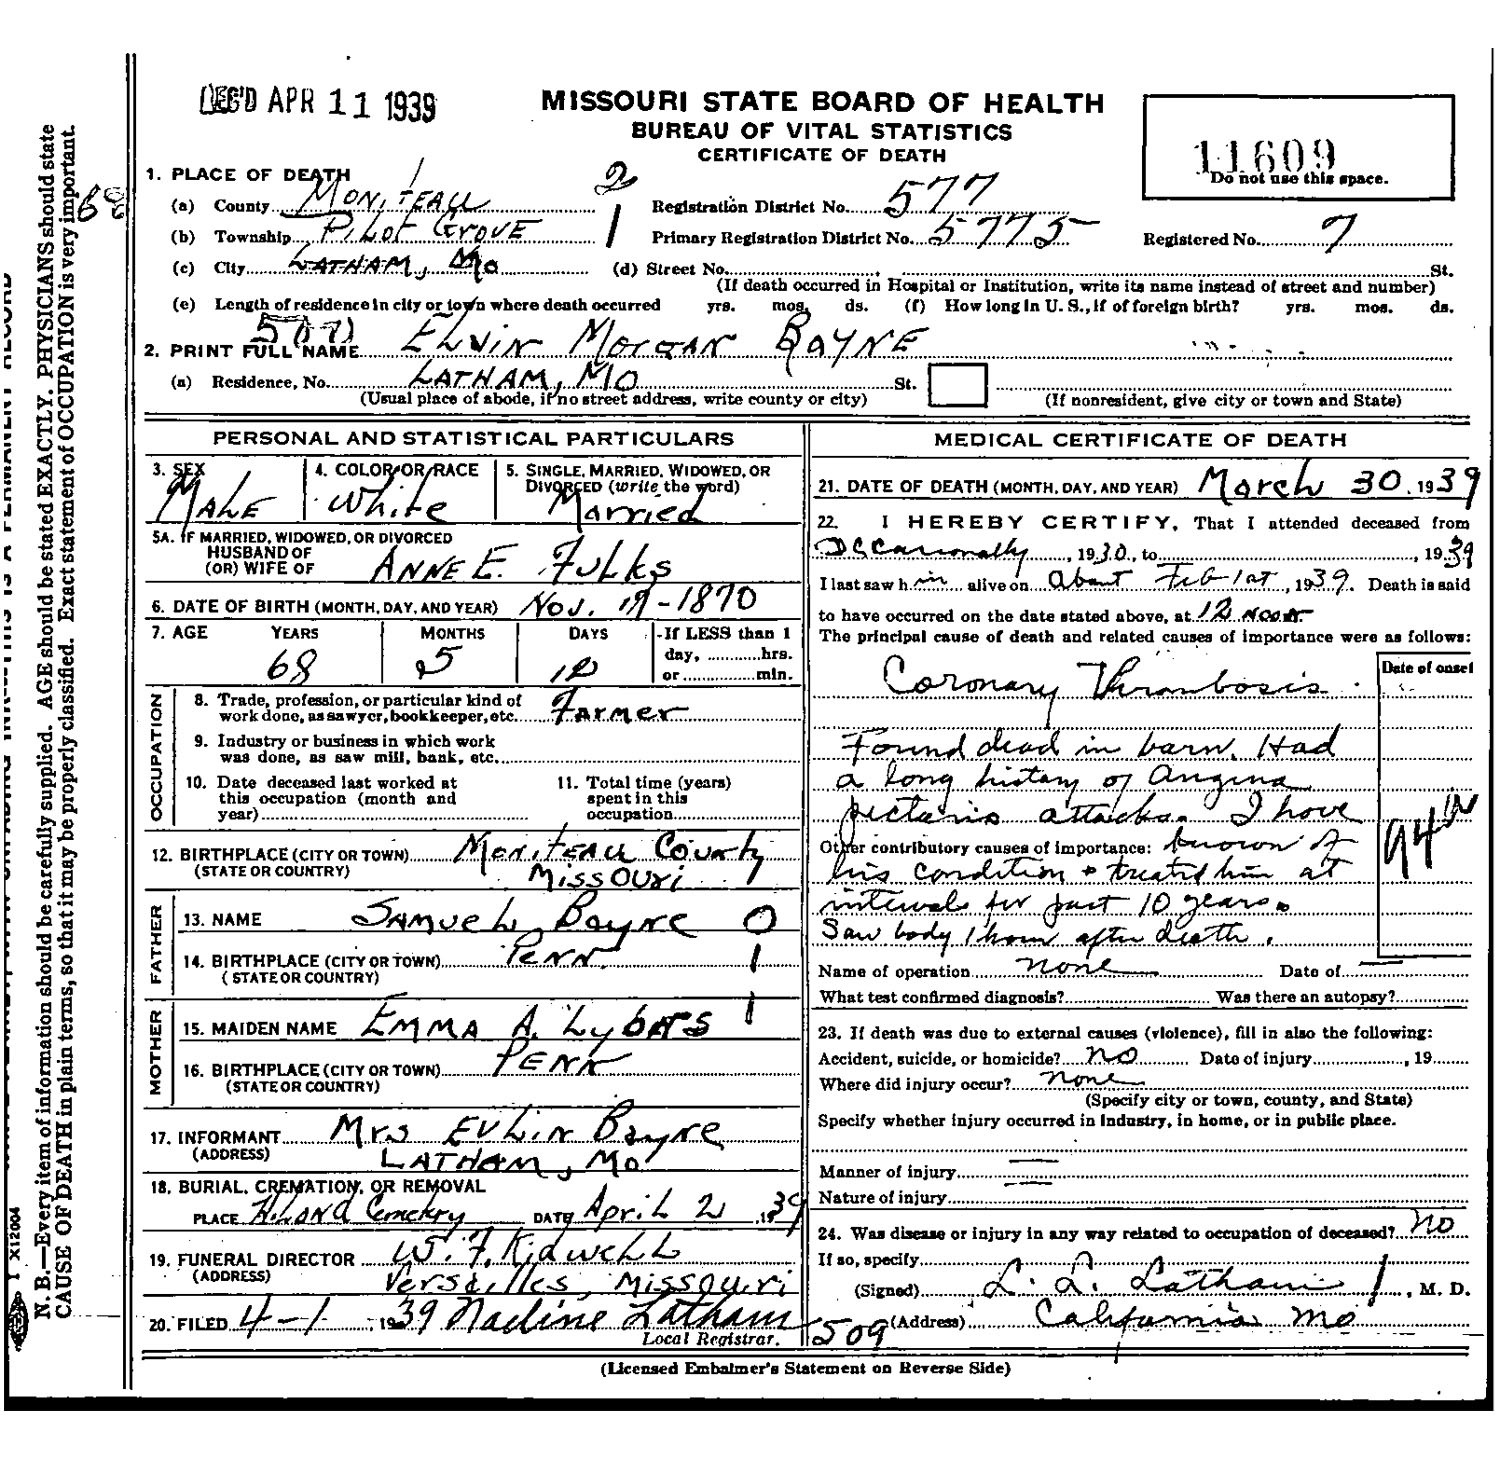 REC'D APR 11 1939
MISSOURI STATE BOARD OF HEALTH
BUREAU OF VITAL STATISTICS
CERTIFICATE OF DEATH
11609
Do not use this space.
1. PLACE OF DEATH
(a) County Moniteau 2
Registration District No. 577
(b) Township Pilot Grove 1
Primary Registration District No. 5775 Registered No. 7
(c) City Latham, Mo (d) Street No. St.
(If death occurred in Hospital or Institution, write its name instead of street and number)
(e) Length of residence in city or town where death occurred yrs. mos. ds. (f) How long in U. S., if of foreign birth? yrs. mos. ds.
2. PRINT FULL NAME Elvin Morgan Bayne
(a) Residence, No. Latham, Mo St.
(Usual place of abode, if no street address, write county or city) (If nonresident, give city or town and State)
PERSONAL AND STATISTICAL PARTICULARS
3. SEX Male
4. COLOR OR RACE White
5. SINGLE, MARRIED, WIDOWED, OR
DIVORCED (write the word)
Married
5A. IF MARRIED, WIDOWED, OR DIVORCED
HUSBAND OF
(OR) WIFE OF Anne E. Fulks
6. DATE OF BIRTH (MONTH, DAY, AND YEAR) Nov. 19-1870
7. AGE YEARS MONTHS DAYS If LESS than 1
day, hrs.
or min.
68 5
OCCUPATION
8. Trade, profession, or particular kind of
work done, as sawyer, bookkeeper, etc. Farmer
9. Industry or business in which work
was done, as saw mill, bank, etc.
10. Date deceased last worked at
this occupation (month and
year)
11. Total time (years)
spent in this
occupation
12. BIRTHPLACE (CITY OR TOWN) Moniteau County
(STATE OR COUNTRY) Missouri
FATHER
13. NAME Samuel Bayne 0
14. BIRTHPLACE (CITY OR TOWN) Penn. 1
(STATE OR COUNTRY)
MOTHER
15. MAIDEN NAME Emma A. 1
16. BIRTHPLACE (CITY OR TOWN) Penn
(STATE OR COUNTRY)
17. INFORMANT Mrs Evlin Bayne
(ADDRESS) Latham, Mo
18. BURIAL, CREMATION, OR REMOVAL
PLACE Hiland Cemetery DATE April 2, 1939
19. FUNERAL DIRECTOR W. F. Kidwell
(ADDRESS) Versailles, Missouri
20. FILED 4-1, 1939 Nadine Latham
Local Registrar.
MEDICAL CERTIFICATE OF DEATH
21. DATE OF DEATH (MONTH, DAY, AND YEAR) March 30, 1939
22. I HEREBY CERTIFY, That I attended deceased from
Occasionally, 1930, to , 1939
I last saw him alive on about Feb 1st, 1939. Death is said
to have occurred on the date stated above, at 12 noon
The principal cause of death and related causes of importance were as follows:
Date of onset
Coronary Thrombosis
Found dead in barn. Had
a long history of Angina
pectoris attacks. I have
Other contributory causes of importance: known of
his condition & treated him at
intervals for past 10 years.
Saw body 1 hour after death.
Name of operation none Date of
What test confirmed diagnosis? Was there an autopsy?
23. If death was due to external causes (violence), fill in also the following:
Accident, suicide, or homicide? no Date of injury , 19
Where did injury occur? none
(Specify city or town, county, and State)
Specify whether injury occurred in industry, in home, or in public place.
Manner of injury
Nature of injury
24. Was disease or injury in any way related to occupation of deceased? No
If so, specify
(Signed) L. L. Latham, M. D.
509 (Address) California Mo
(Licensed Embalmer's Statement on Reverse Side)
N. B.—Every item of information should be carefully supplied. AGE should be stated EXACTLY. PHYSICIANS should state
CAUSE OF DEATH in plain terms, so that it may be properly classified. Exact statement of OCCUPATION is very important.
X12004